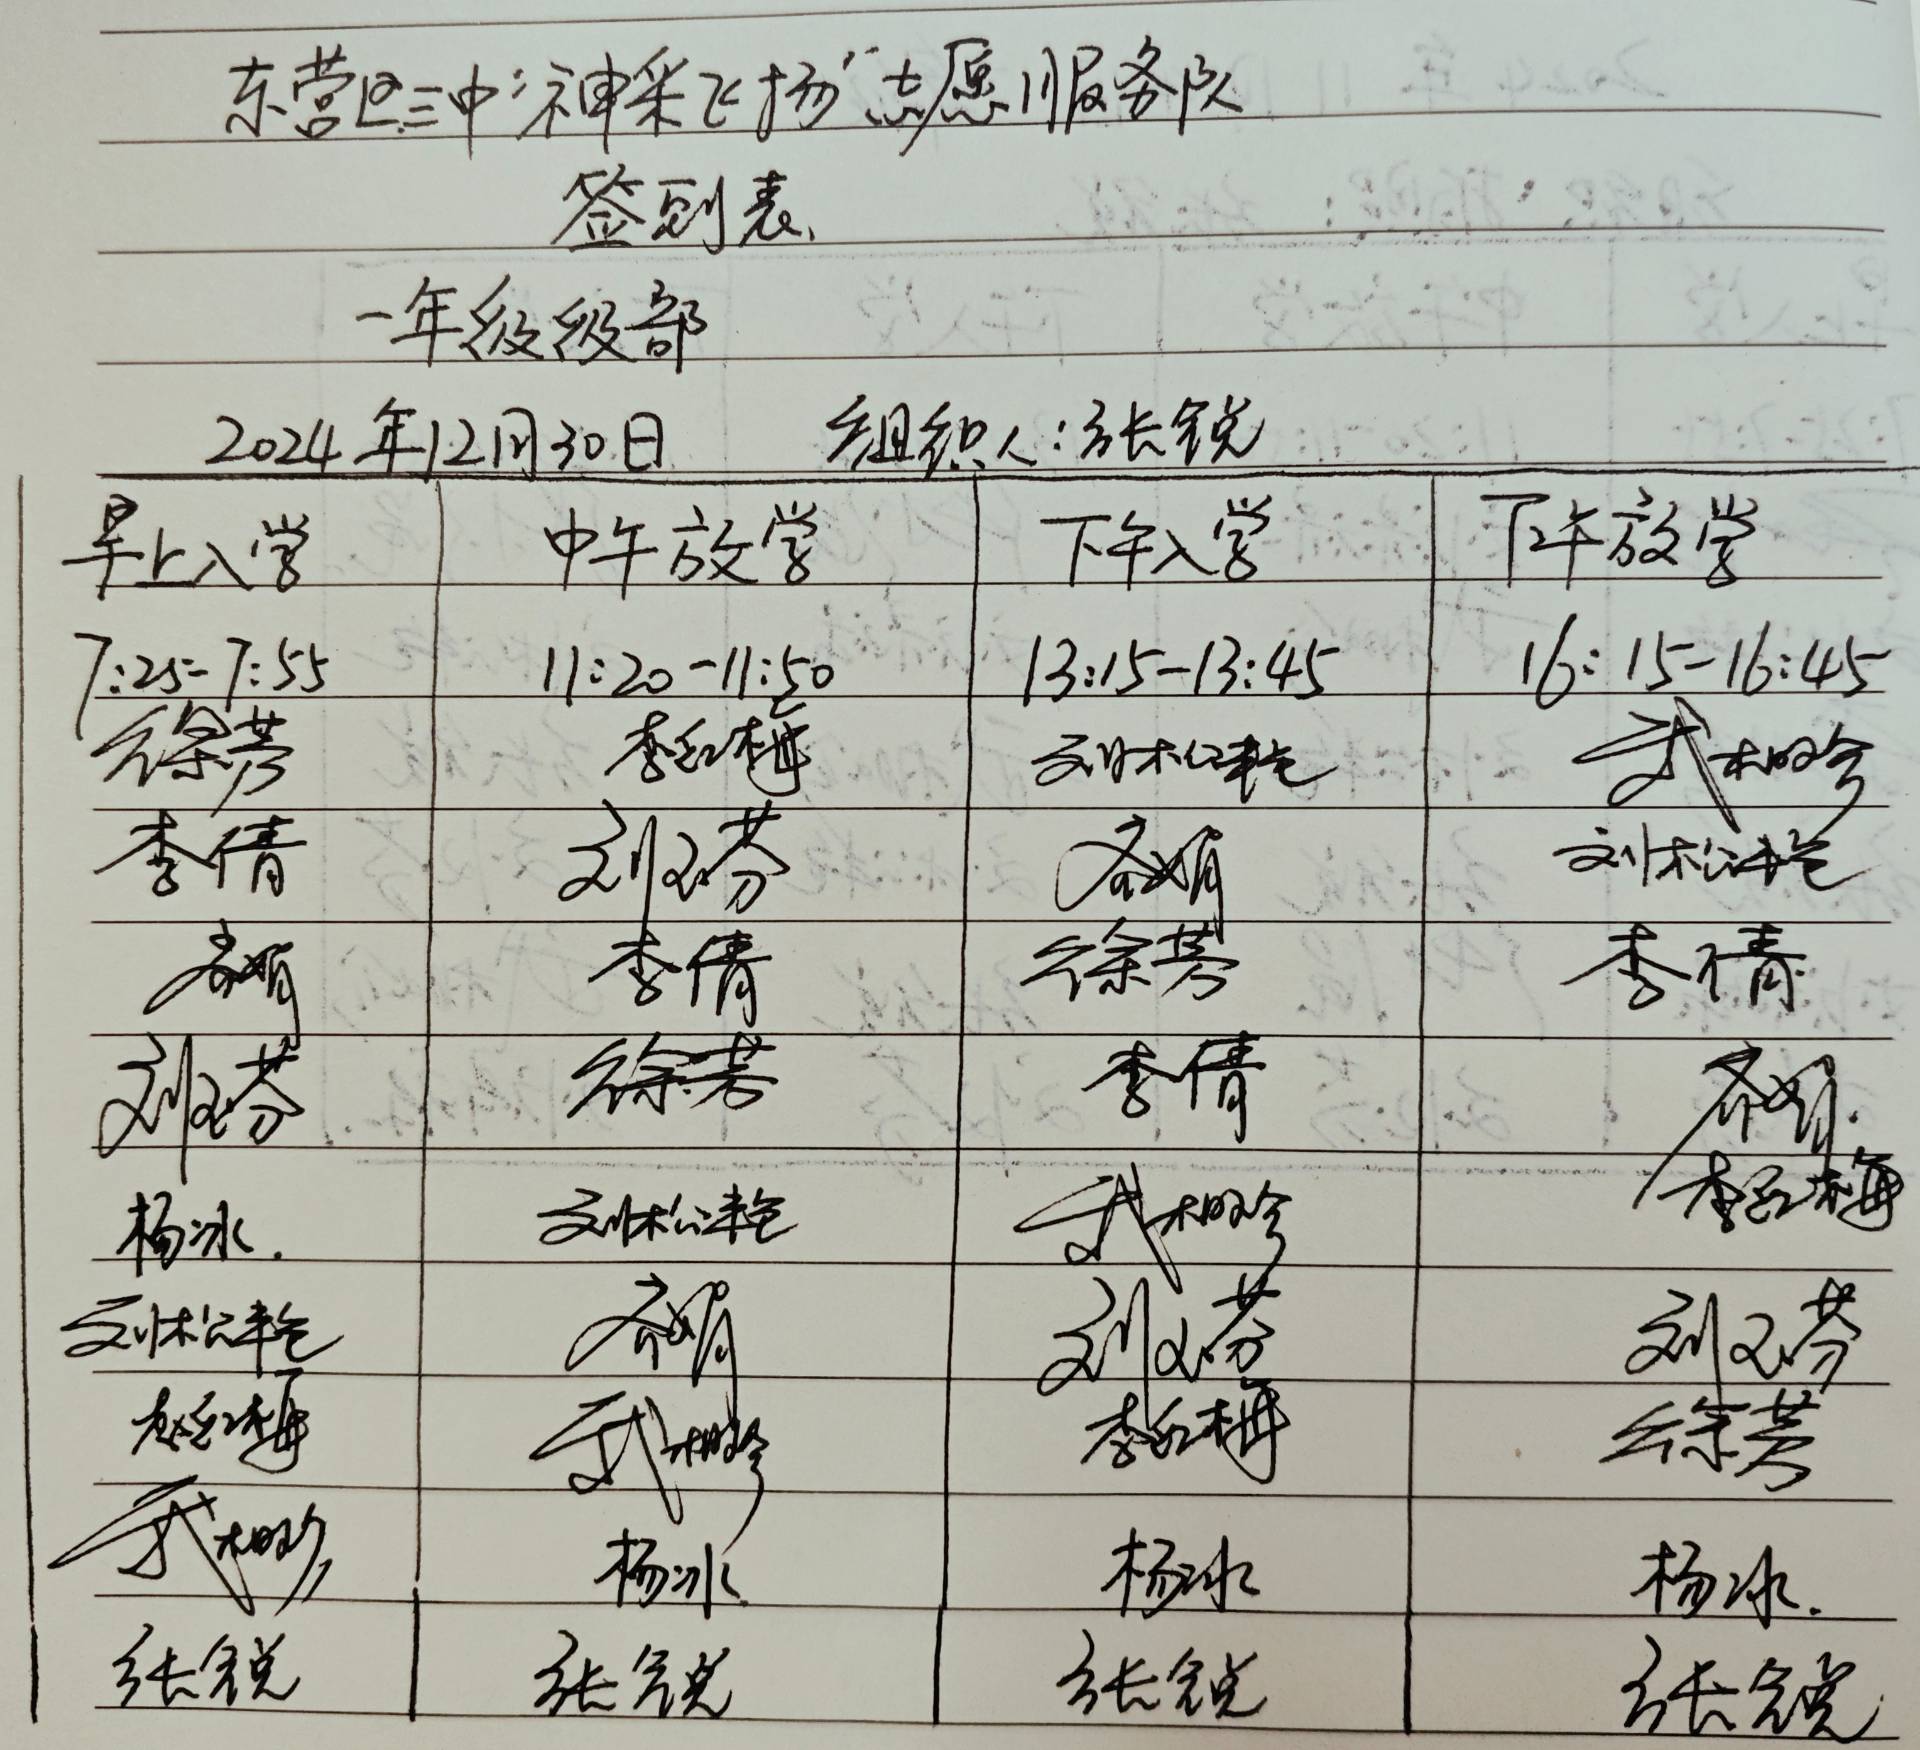 东营区三中“神采飞扬”志愿服务队
签到表
一年级级部
2024年12月30日 组织人:张锐
早上入学 中午放学 下午入学 下午放学
7:25-7:55 11:20-11:50 13:15-13:45 16:15-16:45
徐芳 李红梅 刘松艳 武相玲
李倩 刘文芬 齐娟 刘松艳
齐娟 李倩 徐芳 李倩
刘文芬 徐芳 李倩 齐娟
杨冰 刘松艳 武相玲 李红梅
刘松艳 齐娟 刘文芬 刘文芬
李红梅 武相玲 李红梅 徐芳
武相玲 杨冰 杨冰 杨冰
张锐 张锐 张锐 张锐